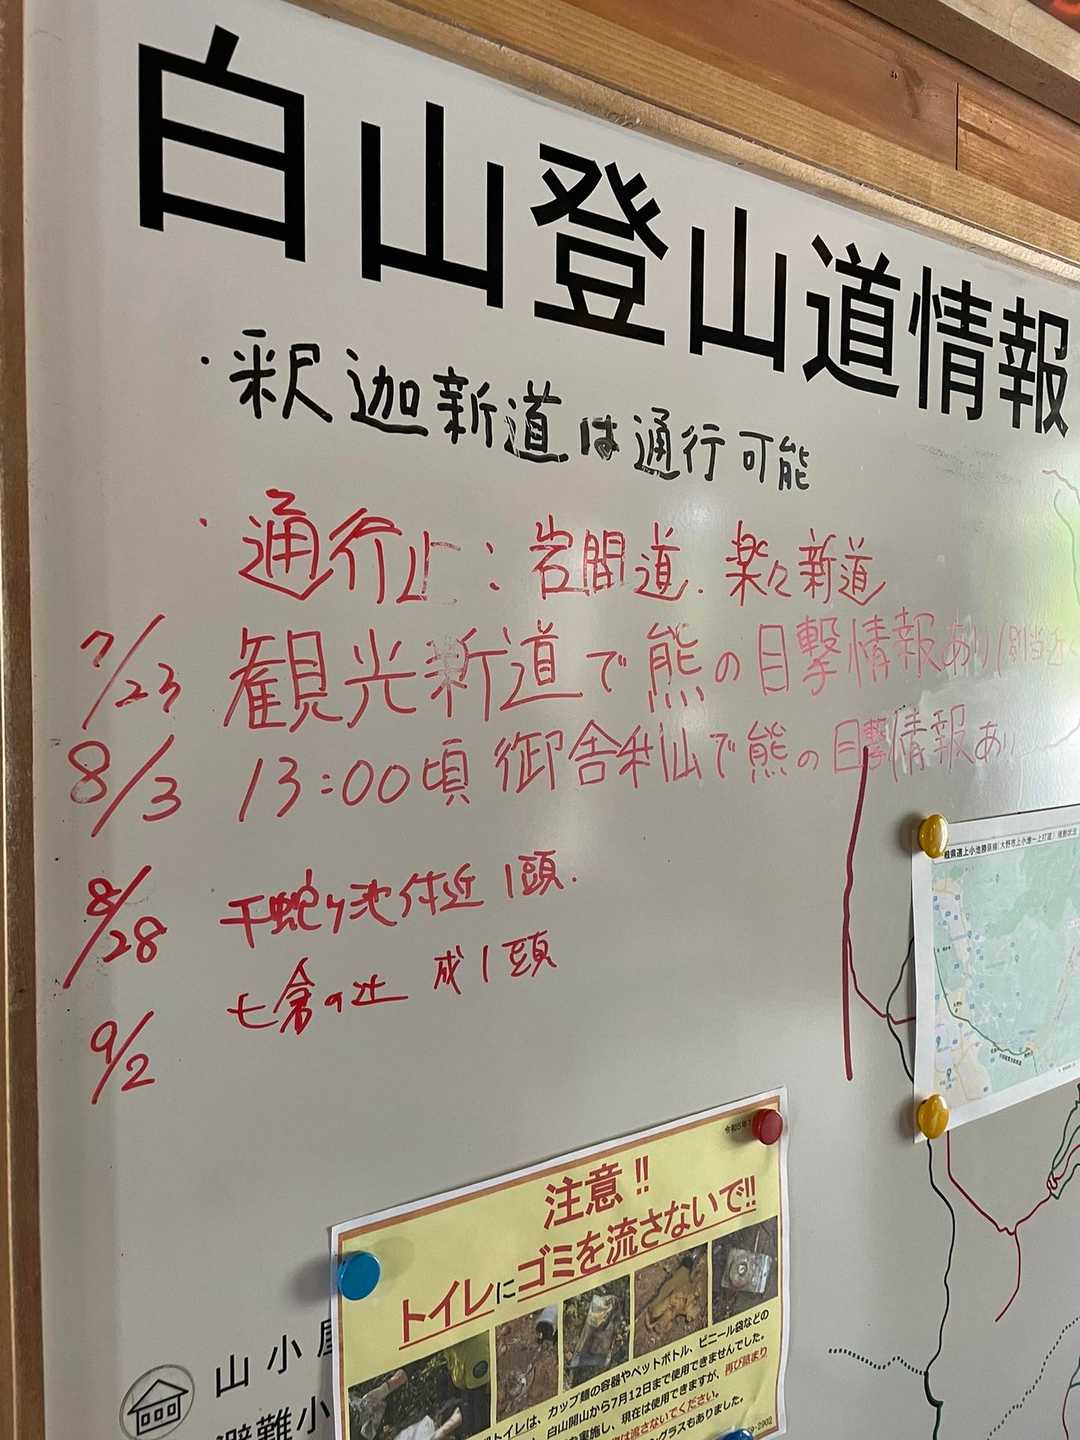 白山登山道情報
・釈迦新道は通行可能
・通行止：岩間道．楽々新道
7/23 観光新道で熊の目撃情報あり(別当近
8/3 13:00頃 御舎利山で熊の目撃情報あり
8/28 千蛇ヶ池付近 1頭．
9/2 七倉の辻 成1頭
岐阜県道上小池勝原線(大野市上小池～上打波)
令和5年
注意!!
トイレにゴミを流さないで!!
トイレは、カップ麺の容器やペットボトル、ビニール袋などの
白山開山から7月12日まで使用できませんでした。
を実施し、現在は使用できますが、再び詰まり
は流さないでください。
グラスもありました。
山小屋
避難小